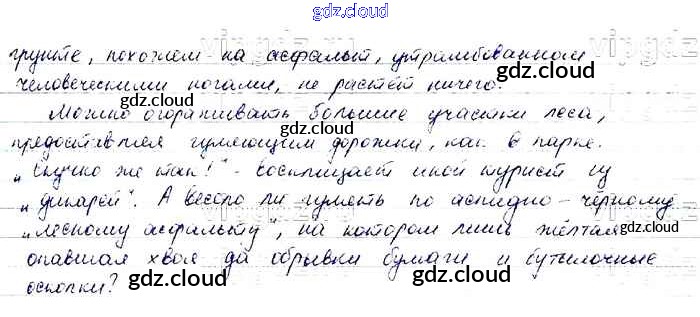 gdz.cloud
грунте, похожем на асфальт, утрамбованном
человеческими ногами, не растёт ничего.
gdz.cloud
Можно огораживать большие участки леса,
предоставляя гуляющим дорожки, как в парке.
„Скучно же так!“ - воскликнет иной турист из
„дикарей“. А весело ли гулять по аспидно-чёрному
„лесному асфальту“, на котором лишь жёлтая
опавшая хвоя да обрывки бумаги и бутылочные
осколки?
gdz.cloud